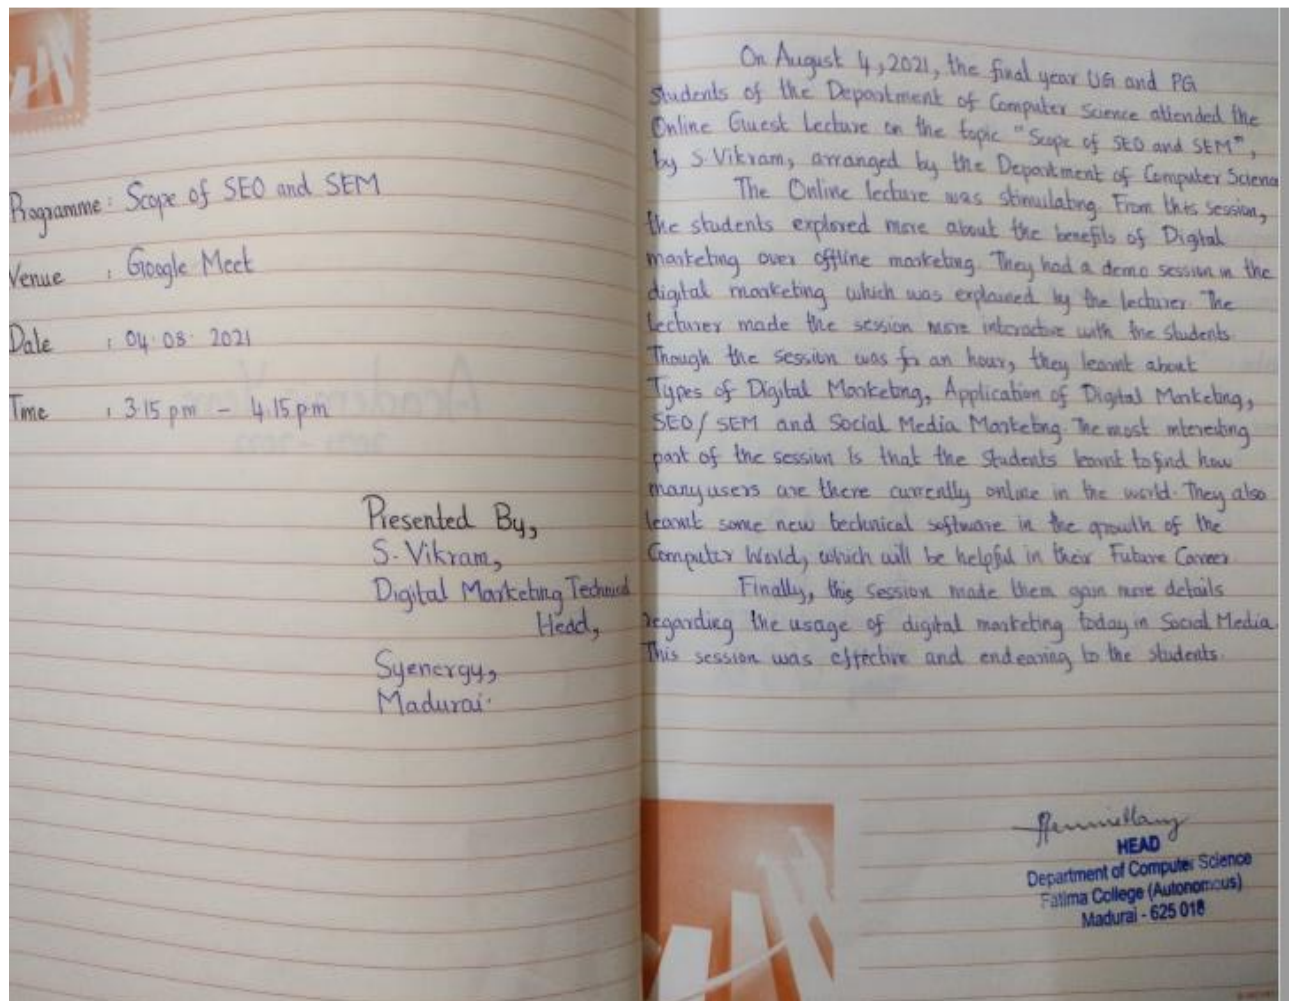 Programme : Scope of SEO and SEM
Venue : Google Meet
Date : 04.08.2021
Time : 3.15 pm - 4.15 pm
Presented By,
S. Vikram,
Digital Marketing Technical
Head,
Syenergy,
Madurai.
On August 4, 2021, the final year UG and PG
students of the Department of Computer Science attended the
Online Guest Lecture on the topic "Scope of SEO and SEM",
by S. Vikram, arranged by the Department of Computer Science
The Online lecture was stimulating. From this session,
the students explored more about the benefits of Digital
marketing over offline marketing. They had a demo session in the
digital marketing which was explained by the lecturer. The
lecturer made the session more interactive with the students.
Though the session was for an hour, they learnt about
Types of Digital Marketing, Application of Digital Marketing,
SEO/SEM and Social Media Marketing. The most interesting
part of the session is that the students learnt to find how
many users are there currently online in the world. They also
learnt some new technical software in the growth of the
Computer World, which will be helpful in their Future Career.
Finally, this session made them gain more details
regarding the usage of digital marketing today in Social Media.
This session was effective and endearing to the students.
HEAD
Department of Computer Science
Fatima College (Autonomous)
Madurai - 625 018